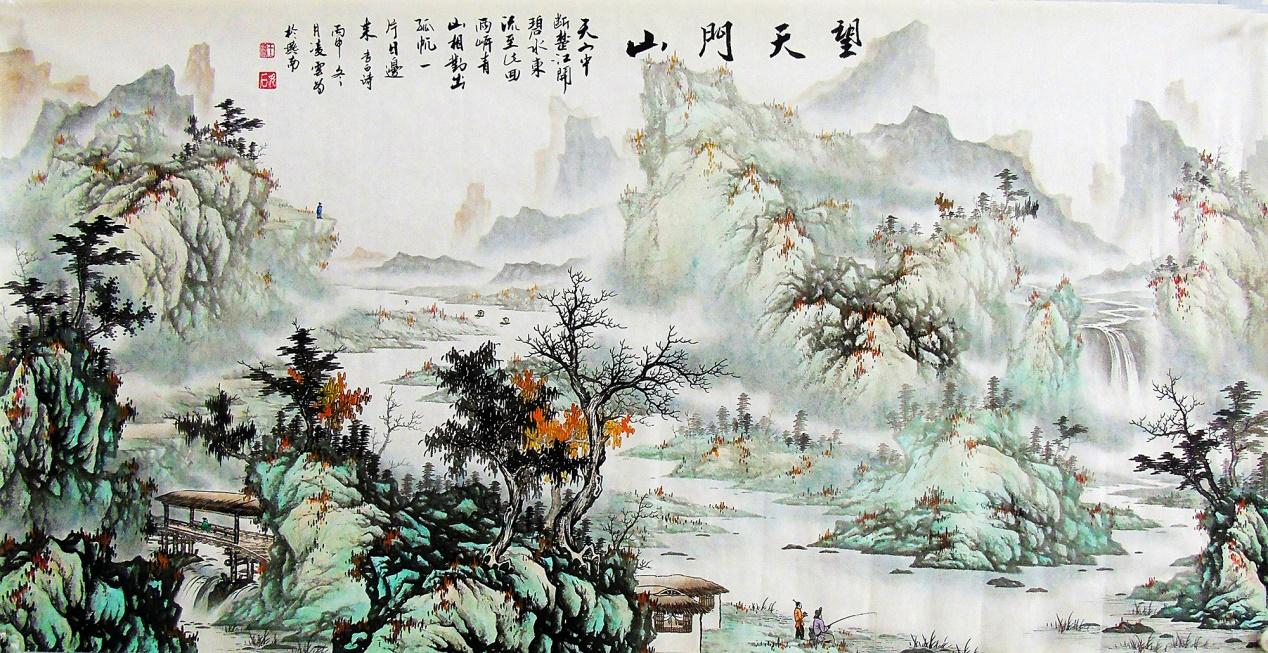 望天門山
天门中
断楚江開
碧水東
流至此回
兩岸青
山相對出
孤帆一
片日邊
来 李白詩
丙申 冬
月凌雲
於 南